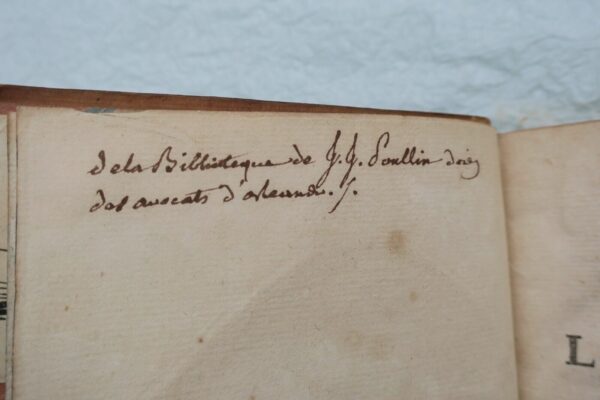 de la Biblioteque de J. J. Poullin doïen
des avocats d'orleans. /.
L